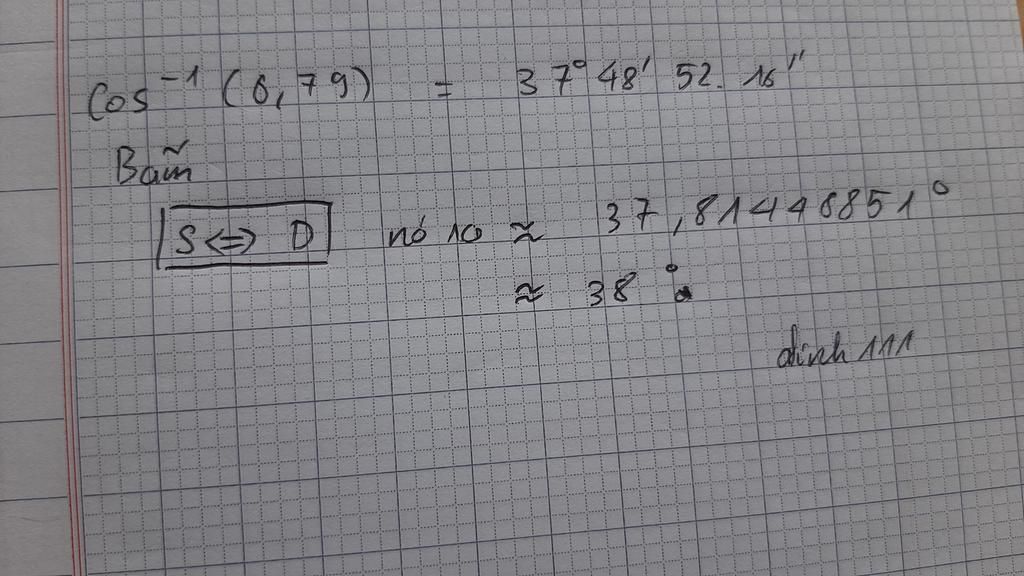 Cos⁻¹ (0,79) = 37° 48' 52.16"
Bấm
S⇔D nó ra ≈ 37,81448851°
≈ 38°
dinh 111